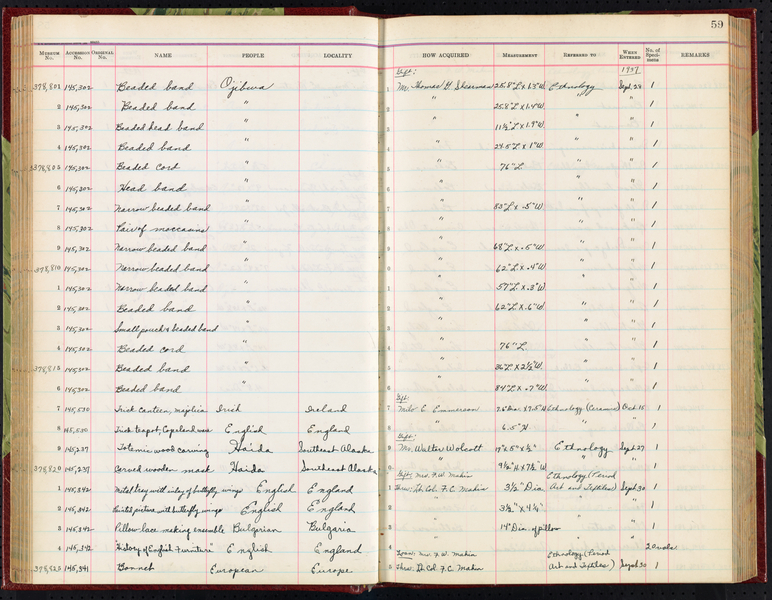 59
MUSEUM No. ACCESSION No. ORIGINAL No. NAME PEOPLE LOCALITY HOW ACQUIRED MEASUREMENT REFERRED TO WHEN ENTERED No. of Specimens REMARKS
Gift: 1937
378,801 145,302 Beaded band Ojibwa 1 Mr. Thomas H. Shearman 125.8"L x 1.3"W. Ethnology Sept. 28 1
2 145,302 Beaded band " " 25.8"L x 1.4"W " 1
3 145,302 Beaded head band " " 11½"L x 1.9"W. " " 1
4 145,302 Beaded band " " 24.5"L x 1"W " " 1
378,805 145,302 Beaded cord " " 76"L " " 1
6 145,302 Head band " " " " 1
7 145,302 Narrow beaded band " " 53"L x .5"W. " " 1
8 145,302 Pair of moccasins " " " " 1
9 145,302 Narrow beaded band " " 68"L x .5"W. " " 1
378,810 145,302 Narrow beaded band " " 62"L x .4"W. " " 1
1 145,302 Narrow beaded band " " 57"L x .3"W. " " 1
2 145,302 Beaded band " " 62"L x .6"W. " " 1
3 145,302 Small pouch & beaded band " " " " 1
4 145,302 Beaded cord " " 76"L. " " 1
378,815 145,302 Beaded band " " 36"L x 2½"W. " " 1
6 145,302 Beaded band " " 84"L x .7"W. " " 1
Gift:
7 145,530 Irish canteen, majolica Irish Ireland 7 Milo E. Emmerson Ethnology (Ceramics) Oct. 15 1
8 145,530 Irish teapot, Copeland ware English England " 6.5"H " " 1
Gift:
9 145,237 Totemic wood carving Haida Southeast Alaska 9 Mr. Walter Wolcott Ethnology Sept. 27 1
378,820 145,237 Carved wooden mask Haida Southeast Alaska " 9½"H x 7½"W " " 1
Gift: Mrs. F. W. Makin Ethnology (Period
1 145,342 Metal tray with inlay of butterfly wings English England 1 Thru. Lt. Col. F. C. Makin 3½" Dia. Art and Textiles) Sept. 30 1
2 145,342 Painted picture with butterfly wings English England " 3½" x 4¼" " " 1
3 145,342 Pillow lace making ensemble Bulgarian Bulgaria " 14" Dia. of pillow " " 1
4 145,342 "History of English Furniture" English England " " " 2 vols.
Loan: Mrs. F. W. Makin Ethnology (Period
378,825 145,341 Bonnet European Europe 5 Thru. Lt. Col. F. C. Makin Art and Textiles) Sept. 30 1